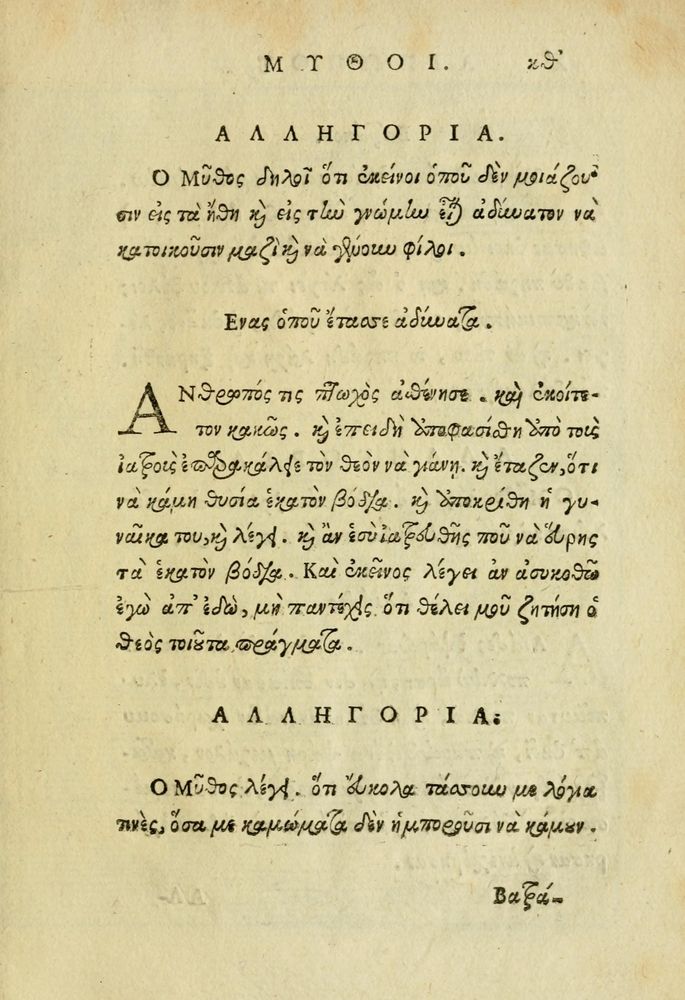 ΜΥΘΟΙ. κθ'
ΑΛΛΗΓΟΡΙΑ.
Ο Μῦθος δηλοῖ ὅτι ἐκεῖνοι ὁποῦ δὲν μοιάζου-
σιν εἰς τὰ ἤθη καὶ εἰς τὴν γνώμην εἶναι ἀδύνατον νὰ
κατοικοῦσιν μαζὶ καὶ νὰ γένουν φίλοι.
Ενας ὁποῦ ἔταξε ἀδύνατα.
ΑΝθρωπός τις πτωχὸς ἀθένησε. καὶ ἐκοίτε-
τον κακῶς. καὶ ἐπειδὴ ἀπεφασίσθη ἀπὸ τοὺς
ἰατροὺς ἐπαρακάλεσε τὸν θεὸν νὰ γιάνῃ. καὶ ἔταζεν, ὅτι
νὰ κάμῃ θυσία ἑκατὸν βόδια. καὶ ἀπεκρίθη ἡ γυ-
ναῖκα του, καὶ λέγει. καὶ ἂν ἐσὺ ἰατρευθῇς ποῦ νὰ εὕρῃς
τὰ ἑκατὸν βόδια. Καὶ ἐκεῖνος λέγει ἂν ἀσυκοθῶ
ἐγὼ ἀπ' ἐδῶ, μὴ παντέχῃς ὅτι θέλει μοῦ ζητήσῃ ὁ
θεὸς τοιοῦτα πράγματα.
ΑΛΛΗΓΟΡΙΑ.
Ο Μῦθος λέγει. ὅτι εὔκολα τάσσουν με λόγια
τινὲς, ὅσα με καμώματα δὲν ἠμποροῦσι νὰ κάμουν.
Βατρά-